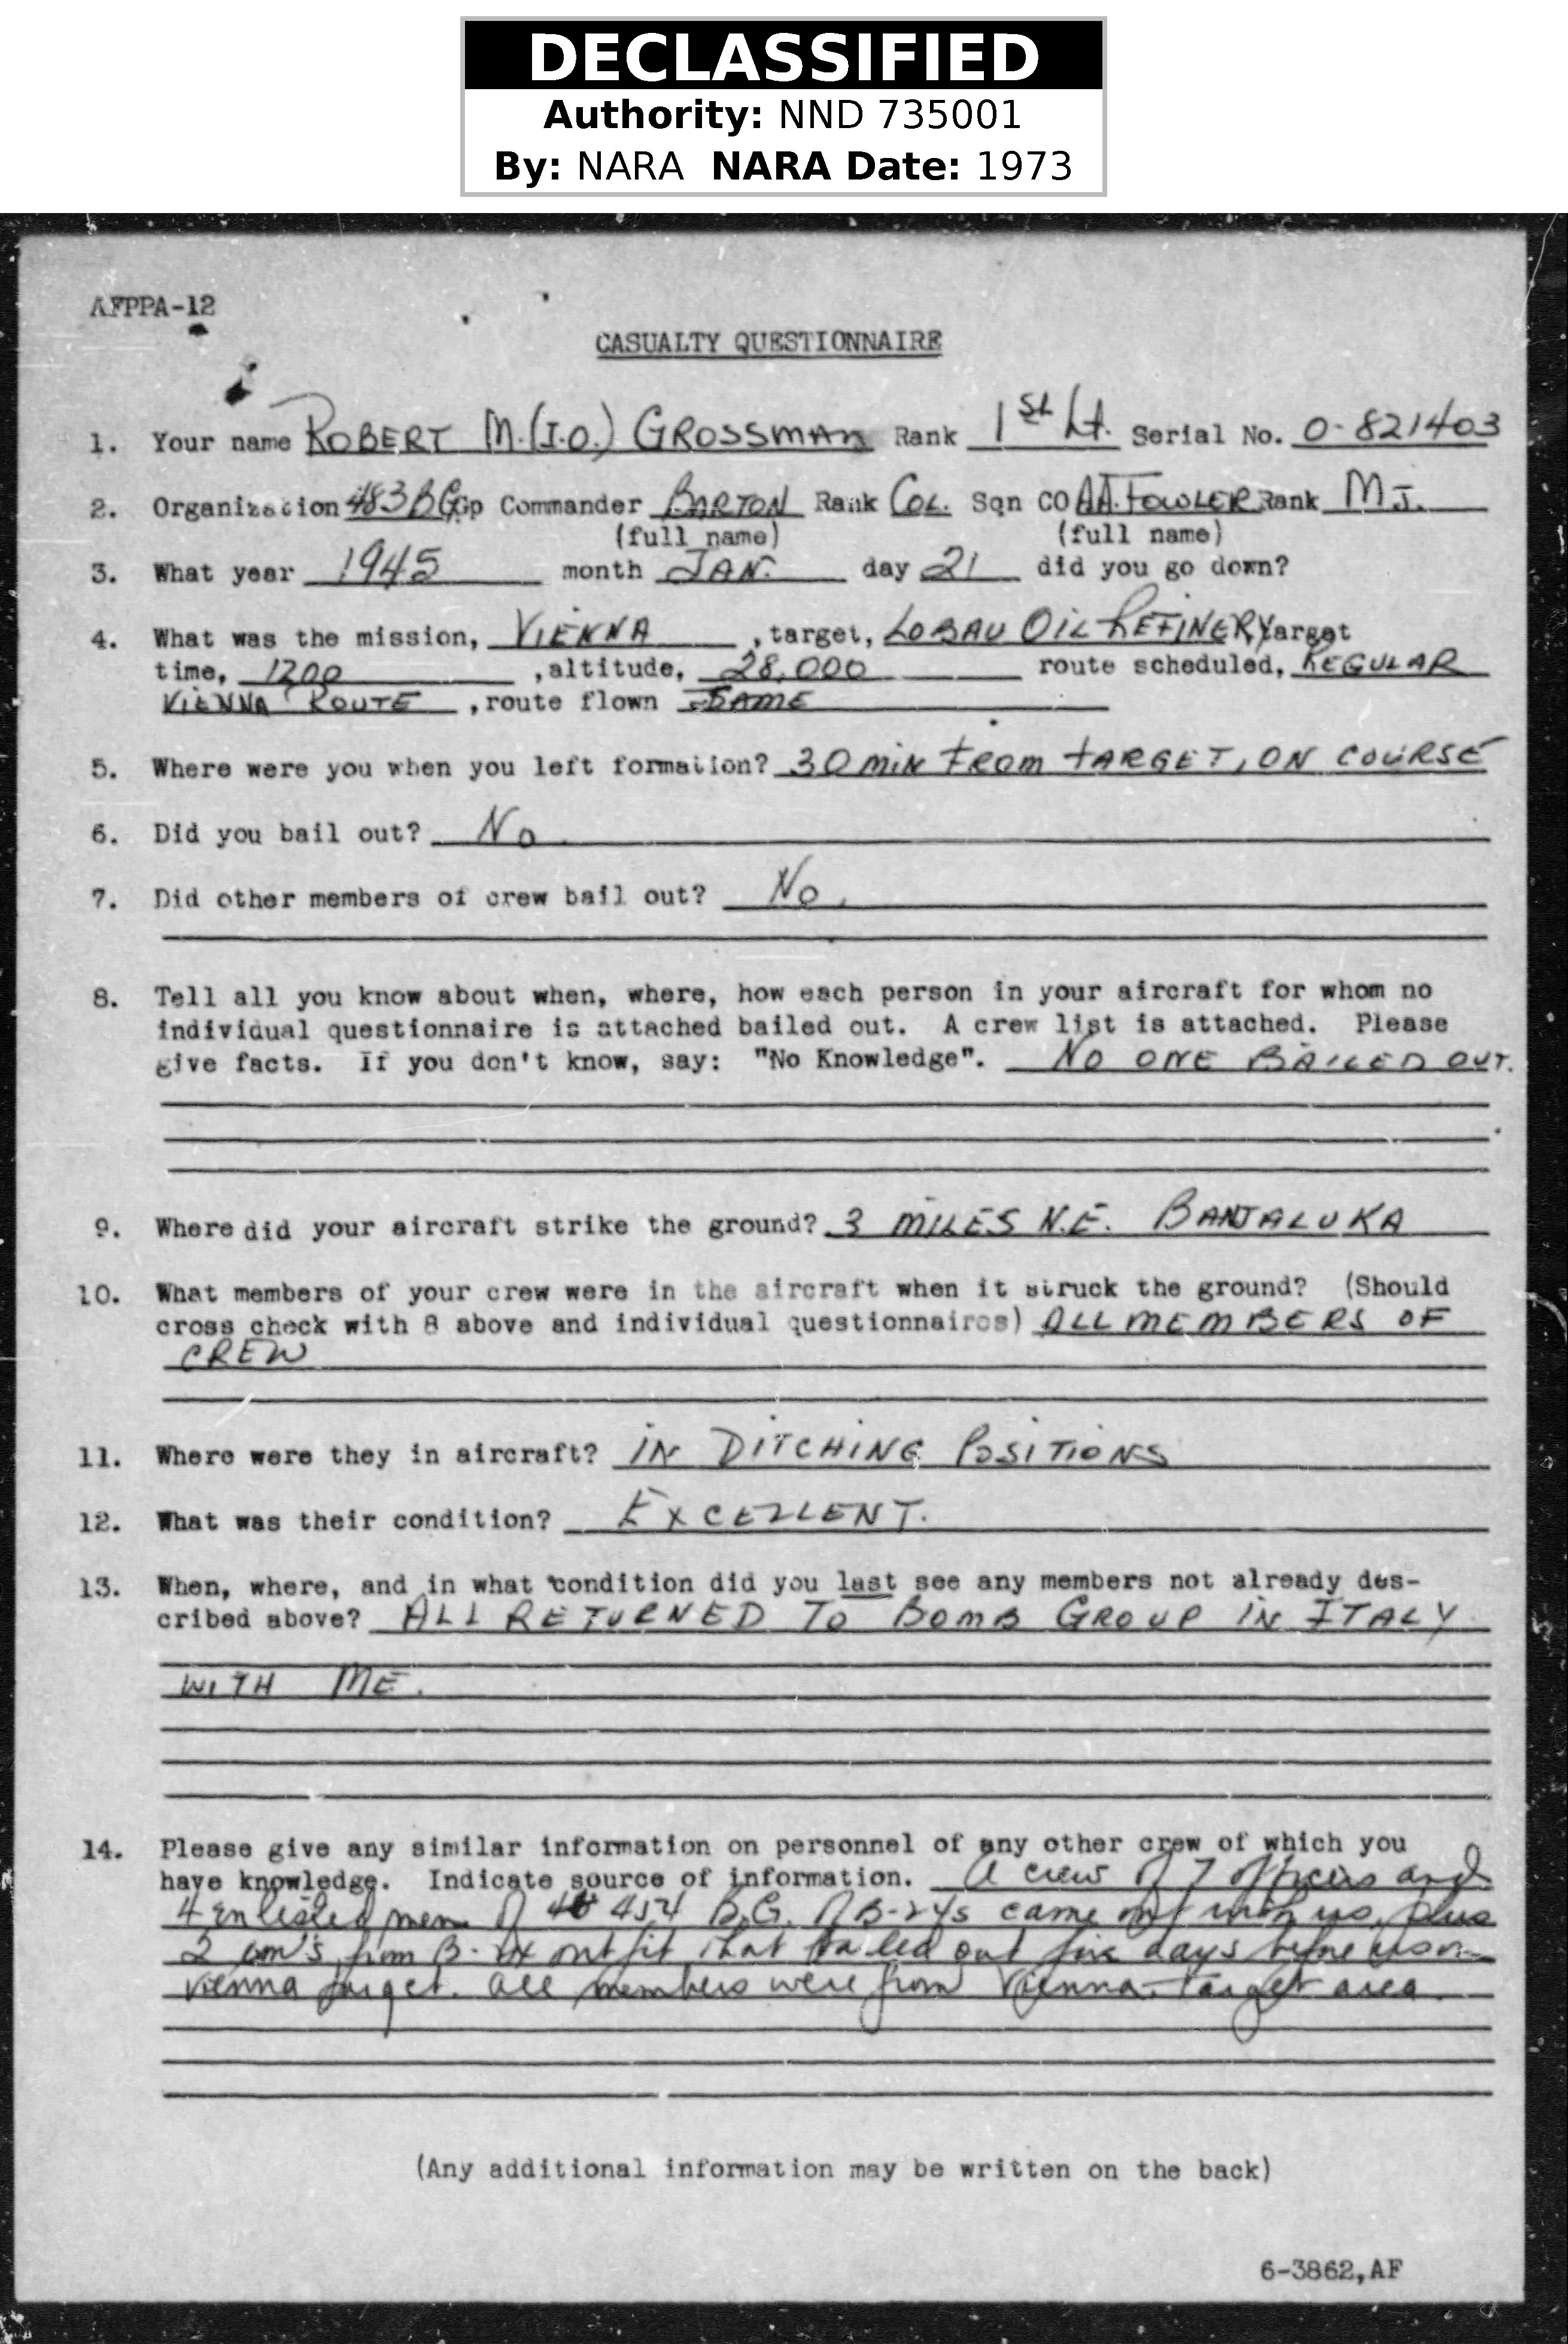 DECLASSIFIED
Authority: NND 735001
By: NARA NARA Date: 1973
AFPPA-12
CASUALTY QUESTIONNAIRE
1. Your name ROBERT M.(I.O.) GROSSMAN Rank 1st Lt. Serial No. O-821403
2. Organization 483 BG Gp Commander BARTON Rank COL. Sqn CO A.A. FOWLER Rank MJ.
(full name) (full name)
3. What year 1945 month JAN. day 21 did you go down?
4. What was the mission, VIENNA , target, LOBAU OIL REFINERY target
time, 1200 , altitude, 28,000 route scheduled, REGULAR
VIENNA ROUTE , route flown SAME
5. Where were you when you left formation? 30 MIN FROM TARGET, ON COURSE
6. Did you bail out? No
7. Did other members of crew bail out? No.
8. Tell all you know about when, where, how each person in your aircraft for whom no
individual questionnaire is attached bailed out. A crew list is attached. Please
give facts. If you don't know, say: "No Knowledge". NO ONE BAILED OUT.
9. Where did your aircraft strike the ground? 3 MILES N.E. BANJALUKA
10. What members of your crew were in the aircraft when it struck the ground? (Should
cross check with 8 above and individual questionnaires) ALL MEMBERS OF
CREW
11. Where were they in aircraft? IN DITCHING POSITIONS
12. What was their condition? EXCELLENT.
13. When, where, and in what condition did you last see any members not already des-
cribed above? ALL RETURNED TO BOMB GROUP IN ITALY
WITH ME.
14. Please give any similar information on personnel of any other crew of which you
have knowledge. Indicate source of information. A crew of 7 officers and
4 enlisted men of 454 B.G. of B-24s came out with us, plus
2 from B-24 outfit that bailed out five days before us on
Vienna target. All members were from Vienna target area.
(Any additional information may be written on the back)
6-3862,AF